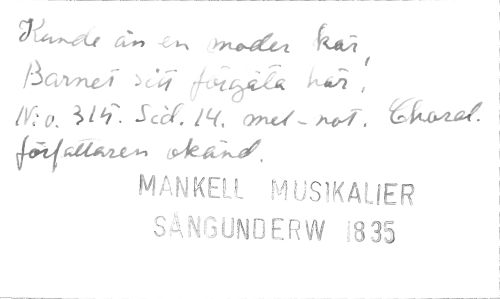 Kunde än en moder kär,
Barnet sitt förgäta här,
N:o. 315. Sid. 14. mel-not. Choral.
författaren okänd.
MANKELL MUSIKALIER
SÅNGUNDERW 1835